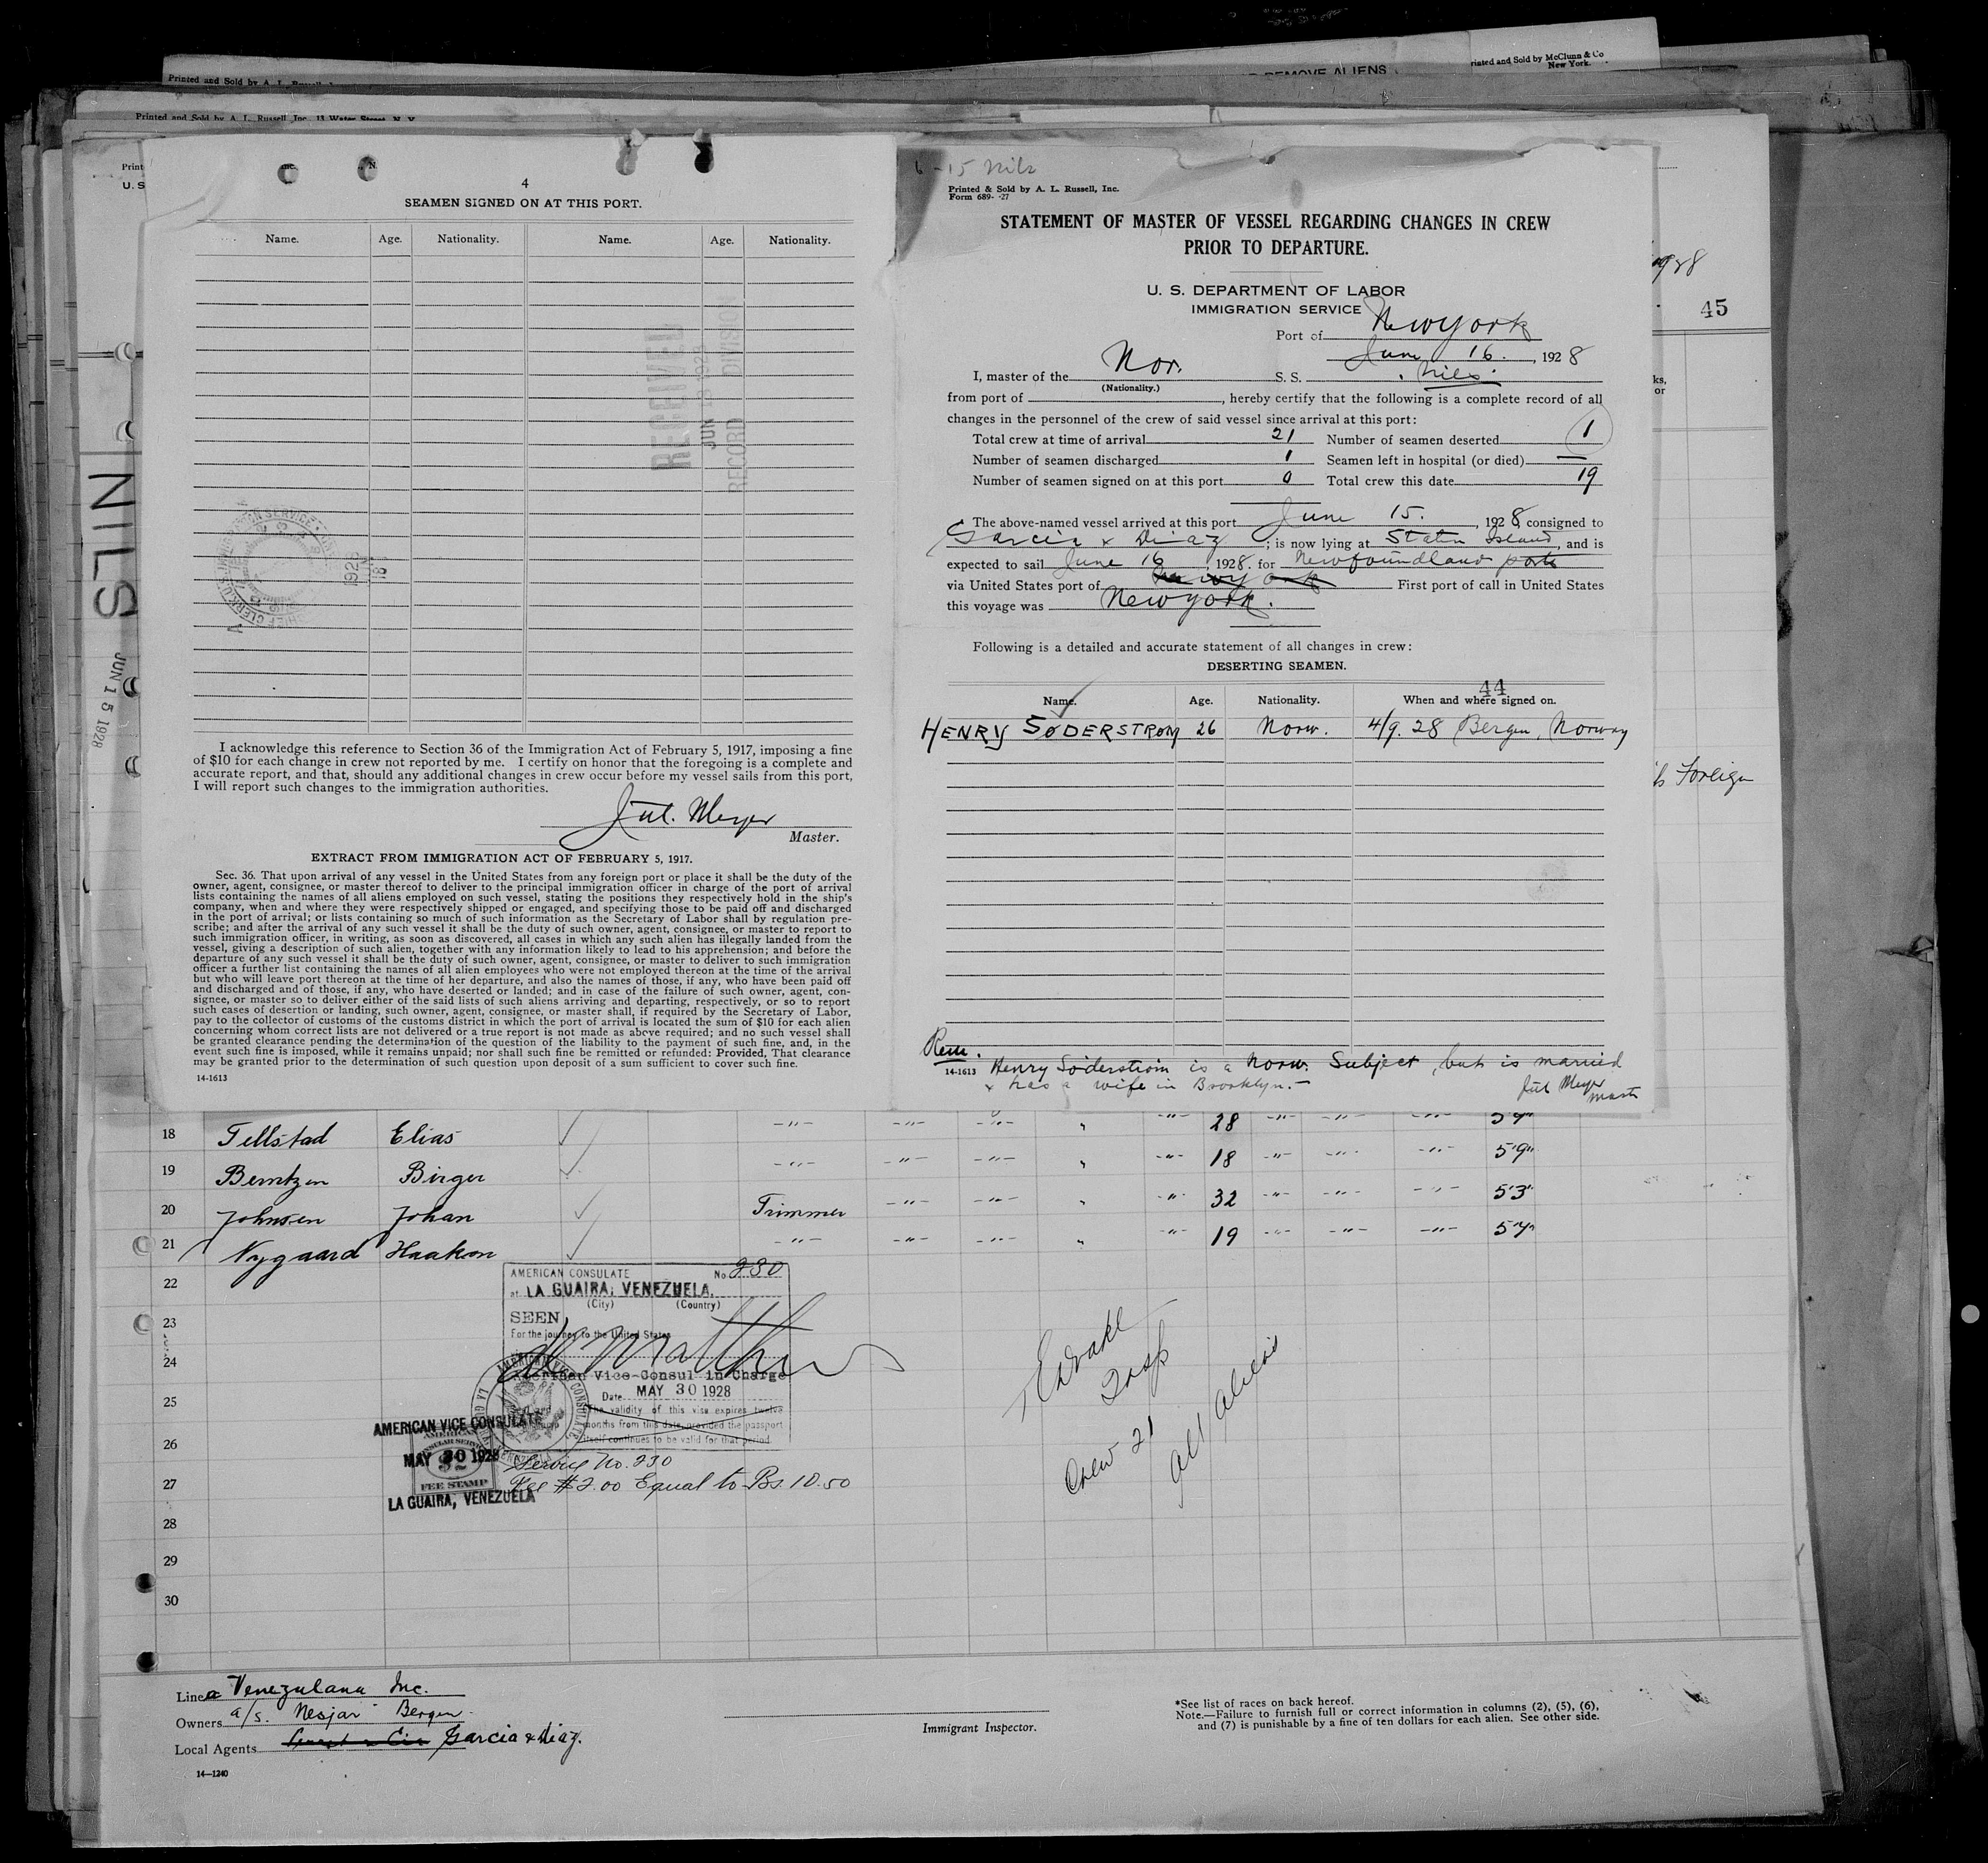 Printed and Sold by McClunn & Co
New York.
REMOVE ALIENS
Printed and Sold by A. L. Russell
Printed and Sold by A. L. Russell, Inc. 13 Water Street, N. Y.
Print
U. S
4
SEAMEN SIGNED ON AT THIS PORT.
Name. Age. Nationality. Name. Age. Nationality.
RECEIVED
JUN 1928
RECORD DIVISION
NILS
JUN 15 1928
I acknowledge this reference to Section 36 of the Immigration Act of February 5, 1917, imposing a fine
of $10 for each change in crew not reported by me. I certify on honor that the foregoing is a complete and
accurate report, and that, should any additional changes in crew occur before my vessel sails from this port,
I will report such changes to the immigration authorities.
Jul. Meyer
Master.
EXTRACT FROM IMMIGRATION ACT OF FEBRUARY 5, 1917.
Sec. 36. That upon arrival of any vessel in the United States from any foreign port or place it shall be the duty of the
owner, agent, consignee, or master thereof to deliver to the principal immigration officer in charge of the port of arrival
lists containing the names of all aliens employed on such vessel, stating the positions they respectively hold in the ship's
company, when and where they were respectively shipped or engaged, and specifying those to be paid off and discharged
in the port of arrival; or lists containing so much of such information as the Secretary of Labor shall by regulation pre-
scribe; and after the arrival of any such vessel it shall be the duty of such owner, agent, consignee, or master to report to
such immigration officer, in writing, as soon as discovered, all cases in which any such alien has illegally landed from the
vessel, giving a description of such alien, together with any information likely to lead to his apprehension; and before the
departure of any such vessel it shall be the duty of such owner, agent, consignee, or master to deliver to such immigration
officer a further list containing the names of all alien employees who were not employed thereon at the time of the arrival
but who will leave port thereon at the time of her departure, and also the names of those, if any, who have been paid off
and discharged and of those, if any, who have deserted or landed; and in case of the failure of such owner, agent, con-
signee, or master so to deliver either of the said lists of such aliens arriving and departing, respectively, or so to report
such cases of desertion or landing, such owner, agent, consignee, or master shall, if required by the Secretary of Labor,
pay to the collector of customs of the customs district in which the port of arrival is located the sum of $10 for each alien
concerning whom correct lists are not delivered or a true report is not made as above required; and no such vessel shall
be granted clearance pending the determination of the question of the liability to the payment of such fine, and, in the
event such fine is imposed, while it remains unpaid; nor shall such fine be remitted or refunded: Provided, That clearance
may be granted prior to the determination of such question upon deposit of a sum sufficient to cover such fine.
14-1613
6-15 Nils
Printed & Sold by A. L. Russell, Inc.
Form 689- -27
STATEMENT OF MASTER OF VESSEL REGARDING CHANGES IN CREW
PRIOR TO DEPARTURE.
U. S. DEPARTMENT OF LABOR
IMMIGRATION SERVICE
Port of New York
June 16. , 1928
I, master of the Nor. S. S. Nils.
(Nationality.)
from port of , hereby certify that the following is a complete record of all
changes in the personnel of the crew of said vessel since arrival at this port:
Total crew at time of arrival 21 Number of seamen deserted 1
Number of seamen discharged 1 Seamen left in hospital (or died) —
Number of seamen signed on at this port 0 Total crew this date 19
The above-named vessel arrived at this port June 15. , 1928 consigned to
Garcia & Diaz ; is now lying at Staten Island, and is
expected to sail June 16 , 1928. for Newfoundland ports
via United States port of New York First port of call in United States
this voyage was New York.
Following is a detailed and accurate statement of all changes in crew:
DESERTING SEAMEN.
44
Name. Age. Nationality. When and where signed on.
HENRY SØDERSTROM 26 Norw. 4/9. 28 Bergen, Norway
Rem.
14-1613 Henry Søderstrom is a Norw. Subject, but is married
& has a wife in Brooklyn. —
Jul Meyer
Mast
1928
45
ks,
or
Foreign
18 Tellstad Elias 28 5'9"
19 Berntzen Birger 18 5'9"
20 Johnsen Johan Trimmer 32 5'3"
21 Nygaard Haakon 19 5'7"
22
23
24
25
26
27
28
29
30
AMERICAN CONSULATE No. 230
at LA GUAIRA, VENEZUELA.
(City) (Country)
SEEN
For the journey to the United States
American Vice-Consul in Charge
Date MAY 30 1928
The validity of this visa expires twelve
months from this date, provided the passport
itself continues to be valid for that period.
AMERICAN VICE CONSULATE
MAY 30 1928
FEE STAMP
LA GUAIRA, VENEZUELA
Service No. 230
Fee $2.00 Equal to Bs. 10.50
Insp
Crew 21
all aliens
Line Venezulana Inc.
Owners a/s. Nesjar Bergen.
Local Agents Garcia & Diaz.
14—1240
Immigrant Inspector.
*See list of races on back hereof.
Note.—Failure to furnish full or correct information in columns (2), (5), (6),
and (7) is punishable by a fine of ten dollars for each alien. See other side.